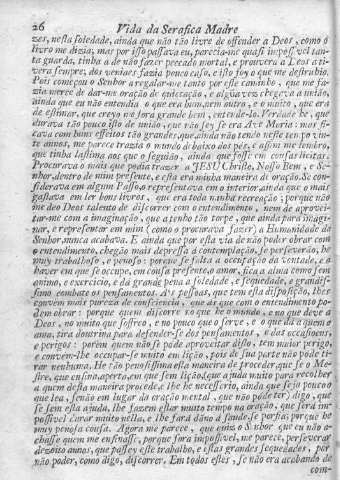 26 Vida da Serafica Madre
zes, nesta soledade, ainda que não tão livre de offender a Deos, como o
livro me dizia, mas por isso passava eu, parecia-me quasi impossivel tan-
ta guarda, tinha a de não fazer peccado mortal, e prouvera a Deos a ti-
vera sempre, dos veniaes fazia pouco caso, e isto foy o que me destrubio.
Pois começou o Senhor a regalar-me tanto por este caminho, que me fa-
zia merce de dar-me oração de quietação, e algũa vez chegava a união,
ainda que eu não entendia o que era hum, nem outro, e o muito, que era
de estimar, que creyo me fora grande bem, entende-lo. Verdade he, que
durava tão pouco isto de união, que não sey se era Ave Maria: mas fi-
cava com huns effeitos tão grandes, que ainda não tendo neste tempo vin-
te annos, me parece trazia o mundo de baixo dos pés, e assim me lembro,
que tinha lastima aos que o seguião, ainda que fosse em cousas licitas.
Procurava o mais que podia trazer a JESU Christo, Nosso Bem, e Se-
nhor, dentro de mim presente, e esta era minha maneira de oração. Se con-
siderava em algum Passo, o representava em o interior, ainda que o mais
gastava em ler bons livros, que era toda minha recreação; porque não
me deo Deos talento de discorrer com o entendimento, nem de aprovei-
tar-me com a imaginação, que a tenho tão torpe, que ainda para imagi-
nar, e representar em mim (como o procurava fazer) a Humanidade do
Senhor, nunca acabava. E ainda que por esta via de não poder obrar com
o entendimento, chegão mais depressa á contemplação, se perseverão, he
muy trabalhoso, e penoso: porque se falta a occupação da vontade, e o
haver em que se occupe, em cousa presente, o amor, fica a alma como sem
animo, e exercicio, e dá grande pena a soledade, e sequedade, e grandis-
simo combate os pensamentos. As pessoas, que tem esta disposição, lhes
convem mais pureza de consciencia, que ás que com o entendimento po-
dem obrar: porque quem discorre no que he o mundo, e no que deve a
Deos, e no muito que soffreo, e no pouco que o serve, e o que dá a quem o
ama, tira doutrina para defender-se dos pensamentos, e das occasioens,
e perigos: porém quem não se póde aproveitar disto, tem maior perigo,
e convem-lhe occupar-se muito em lição, pois de sua parte não póde ti-
rar nenhuma. He tão penosissima esta maneira de proceder, que se o Me-
stre, que ensina, aperta, em que sem lição, (que ajuda muito para recolher,
a quem desta maneira procede, lhe he necessario, ainda que seja pouco o
que lea, senão em lugar da oração mental, que não póde ter) digo, que
se sem esta ajuda, lhe fazem estar muito tempo na oração, que será im-
possivel durar muito nella, e lhe fará dano á saude, se porfia; porque he
muy penosa cousa. Agora me parece, que quiz o Senhor que eu não a-
chasse quem me ensinasse, porque fora impossivel, me parece, perseverar
dezoito annos, que passey este trabalho, e estas grandes sequedades, por
não poder, como digo, discorrer. Em todos estes, se não era acabando de
com-